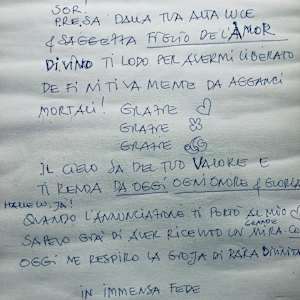 SOR!
PRESA DALLA TUA ALTA LUCE
& SAGGEZZA FIGLIO DE L'AMOR
DIVINO TI LODO PER AVERMI LIBERATO
DEFINITIVAMENTE DA AGGANCI
MORTALI! GRAZIE
GRAZIE
GRAZIE
IL CIELO SA DEL TUO VALORE E
TI RENDA DA OGGI OGNI ONORE & GLORIA
HALLELUJA!
QUANDO L'ANNUNCIAZIONE TI PORTÒ AL MIO
SAPEVO GIÀ DI AVER RICEVUTO UN GRANDE
OGGI NE RESPIRO LA GIOJA DI RARA DIVINITÀ
IN IMMENSA FEDE